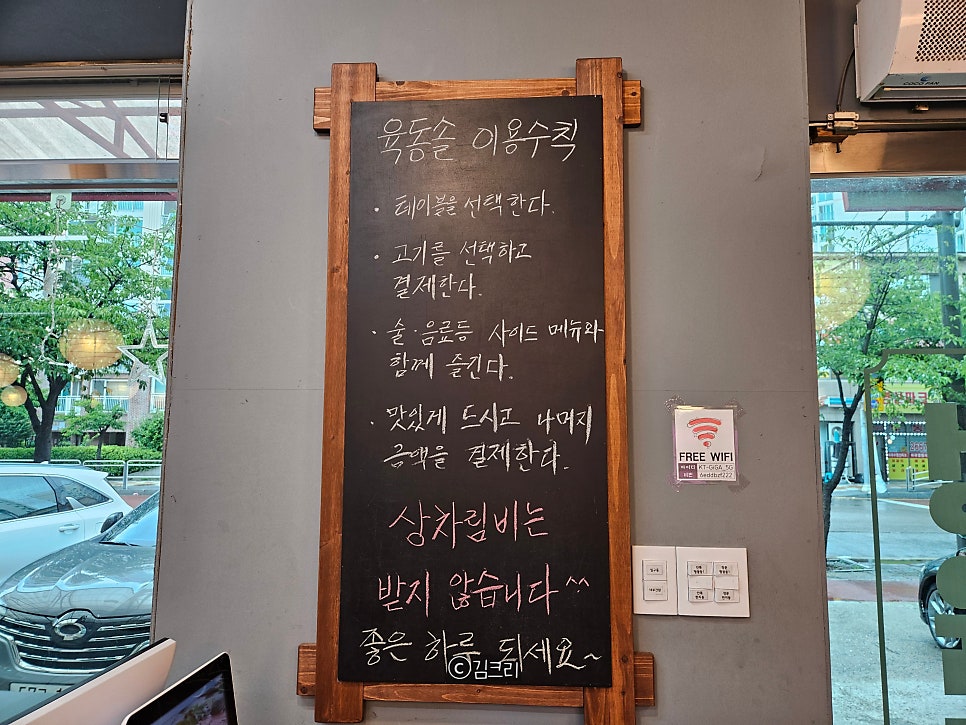 육동솔 이용수칙
· 테이블을 선택한다.
· 고기를 선택하고
결제한다.
· 술·음료등 사이드 메뉴와
함께 즐긴다.
· 맛있게 드시고 나머지
금액을 결제한다.
상차림비는
받지 않습니다 ^^
좋은 하루 되세요~
ⓒ김크리
FREE WIFI
아이디 KT-GiGA_5G
비번 6eddbzf222
COCO FAN